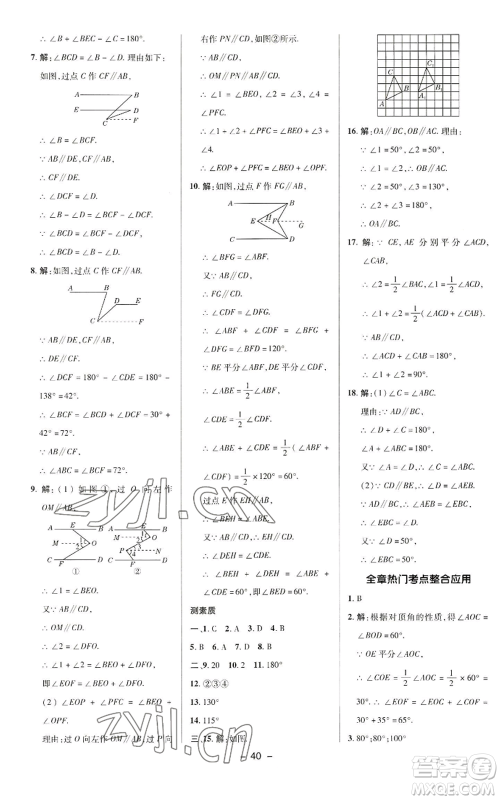 ∴ ∠BEC－∠C＝180°.
7. 解：∠BCD＝∠B－∠D. 理由如下：
如图，过点 C 作 CF∥AB，
A B
D E
C F
∴ ∠B＝∠BCF.
∵ AB∥DE，CF∥AB，
∴ CF∥DE.
∴ ∠DCF＝∠D.
∵ ∠BCD＝∠BCF－∠DCF，
∴ ∠BCD＝∠B－∠D.
8. 解：如图，过点 C 作 CF∥AB，
A B
D E
C F
∵ AB∥DE，
∴ CF∥DE.
∴ ∠DCF＝180°－∠CDE＝180°－
138°＝42°.
∴ ∠BCF＝∠BCD＋∠DCF＝30°＋
42°＝72°.
∵ CF∥AB，
∴ ∠ABC＝∠BCF＝72°.
9. 解：(1) 如图①，过 O 向左作
OM∥AB，
① ②
∴ ∠1＝∠BEO.
又∵ AB∥CD，
∴ OM∥CD.
∴ ∠2＝∠DFO.
∴ ∠1＋∠2＝∠BEO＋∠DFO，
即∠O＝∠BEO＋∠DFO.
(2) ∠EOP＋∠PFC＝∠BEO＋
∠OPF.
理由：过 O 向左作 OM∥AB，过 P 向
右作 PN∥CD，如图②所示.
∵ AB∥CD，
∴ OM∥PN∥AB∥CD.
∴ ∠1＝∠BEO，∠2＝∠3，∠PFC＝∠4.
∴ ∠1＋∠2＋∠PFC＝∠BEO＋∠3＋
∠4.
∴ ∠EOP＋∠PFC＝∠BEO＋∠OPF.
10. 解：如图，过点 F 作 FG∥AB，
∴ ∠BFG＝∠ABF.
又∵ AB∥CD，
∴ FG∥CD.
∴ ∠GFD＝∠CDF.
∴ ∠ABF＋∠CDF＝∠BFG＋
∠GFD＝∠BFD＝120°.
∵ BE 平分∠ABF，DE 平分∠CDF，
∴ ∠ABE＝1/2∠ABF，
∠CDE＝1/2∠CDF.
∴ ∠ABE＋∠CDE＝1/2(∠ABF＋
∠CDF)＝1/2×120°＝60°.
过点 E 作 EH∥AB，
又∵ AB∥CD，
∴ EH∥CD.
∠CDE＝60°.
测素质
二、9. 20 10. 60° 11. 180°
12. ②③④
13. 130°
14. 115°
三、15. 解：如图.
16. 解：OA∥BC，OB∥AC. 理由：
∵ ∠1＝50°，∠2＝50°，
∴ ∠1＝∠2.
∴ OB∥AC.
∵ ∠2＝50°，∠3＝130°，
∴ ∠2＋∠3＝180°.
∴ OA∥BC.
17. 解：∵ CE，AE 分别平分∠ACD，
∠CAB，
∴ ∠2＝1/2∠BAC，∠1＝1/2∠ACD.
∴ ∠1＋∠2＝1/2(∠ACD＋∠CAB).
∵ AB∥CD，
∴ ∠ACD＋∠CAB＝180°.
∴ ∠1＋∠2＝90°.
18. 解：(1) ∠C＝∠A.
理由：∵ AD∥BC，
∴ ∠D＋∠C＝180°.
∵ AB∥CD，
∴ ∠A＋∠D＝180°.
∴ ∠C＝∠A.
(2) ∵ AD∥BC，
∴ ∠AEB＝∠EBC.
又∵ ∠AEB＝50°，
∴ ∠EBC＝50°.
全章热门考点整合应用
1. B
2. 解：根据对顶角的性质得∠AOC＝
∠BOD＝60°.
∵ OE 平分∠AOC，
∴ ∠COE＝1/2∠AOC＝1/2×60°＝
30°.
∴ ∠EOF＝∠COE＋∠COF＝
30°＋35°＝65°.
3. 80°；80°；100°
－ 40 －
zyjl.cn
zyjl.cn